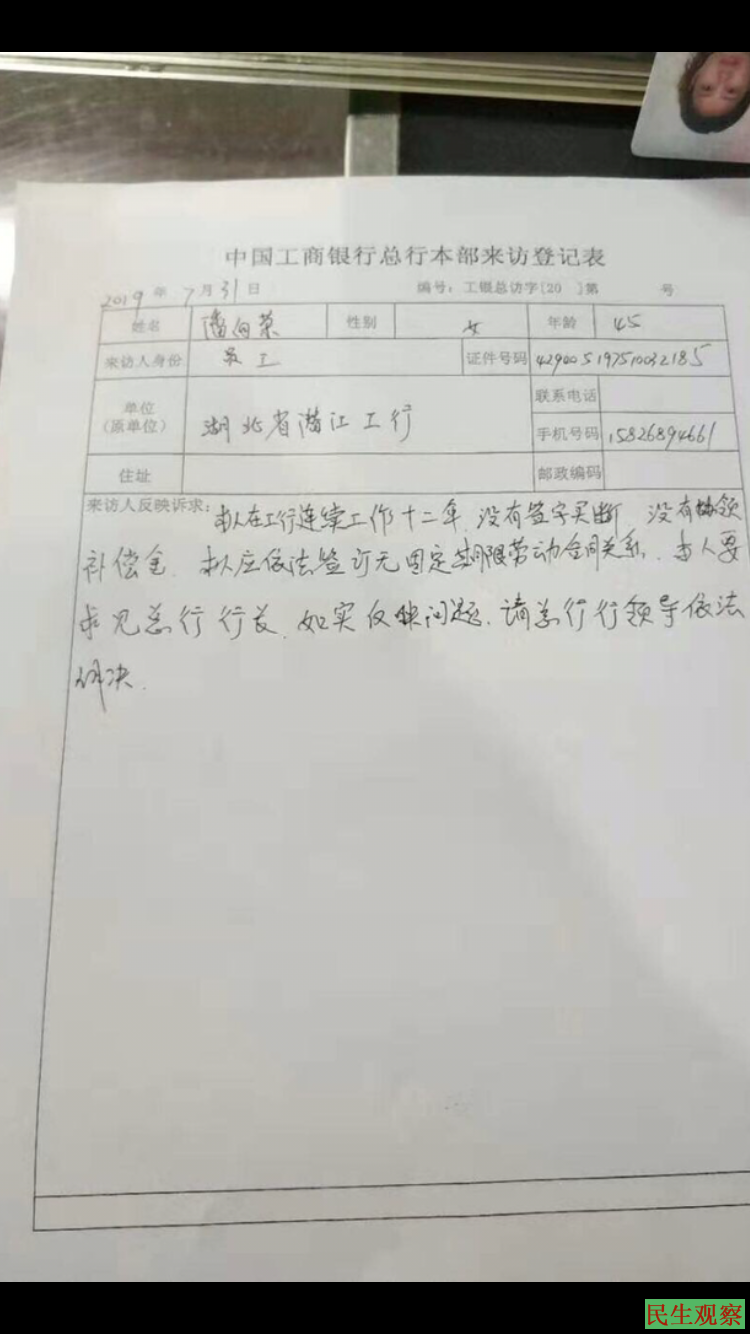 中国工商银行总行本部来访登记表
2019年7月31日 编号：工银总访字[20 ]第 号
姓名 潘向荣 性别 女 年龄 45
来访人身份 员工 证件号码 429005197510032185
单位（原单位） 湖北省潜江工行 联系电话
手机号码 15826894661
住址 邮政编码
来访人反映诉求：本人在工行连续工作十二年，没有签字买断 没有领
补偿金．本人应依法签订无固定期限劳动合同关系．本人要
求见总行行长．如实反映问题．请总行行领导依法
解决．
民生观察